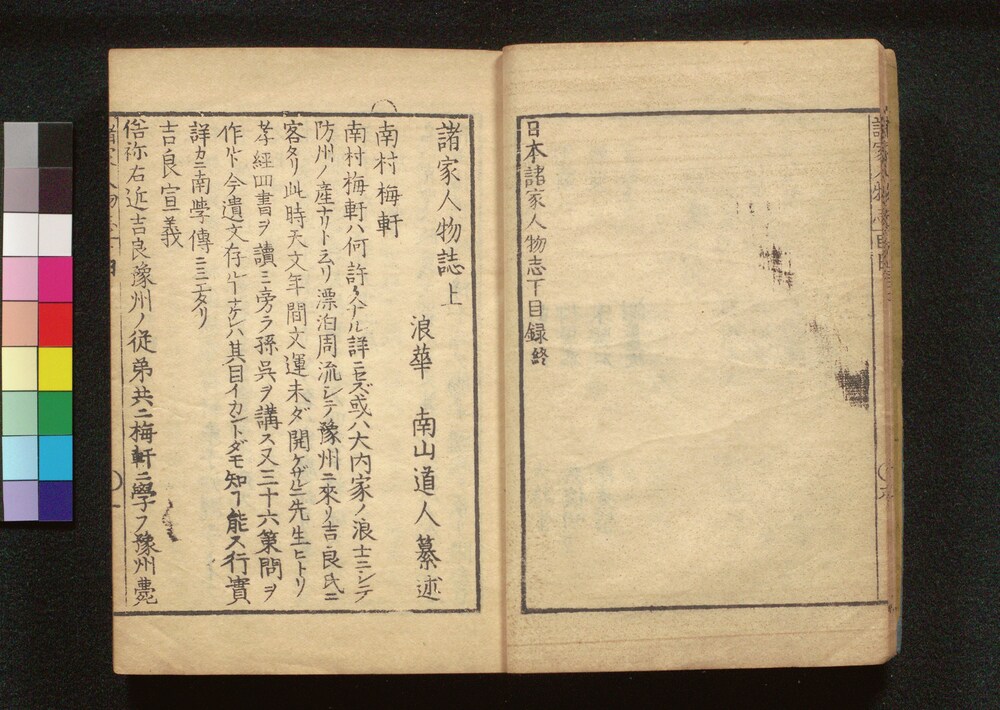 日本諸家人物志下目録終
諸家人物誌上
浪華 南山道人纂述
南村梅軒
南村梅軒ハ何許ノ人ナル詳ニセズ或ハ大内家ノ浪士ニシテ
防州ノ產ナリト云リ漂泊周流シテ豫州ニ來リ吉良氏ニ
客タリ此時天文年間文運未ダ開ケザルニ先生ヒトリ
孝經四書ヲ讀ミ旁ラ孫呉ヲ講ス又三十六策問ヲ
作ルト今遺文存ルヿナケレハ其目イカントダモ知ヿ能ス行實
詳カニ南學傳ニミエタリ
吉良宣義
俗称右近吉良豫州ノ從弟共ニ梅軒ニ學フ豫州薨